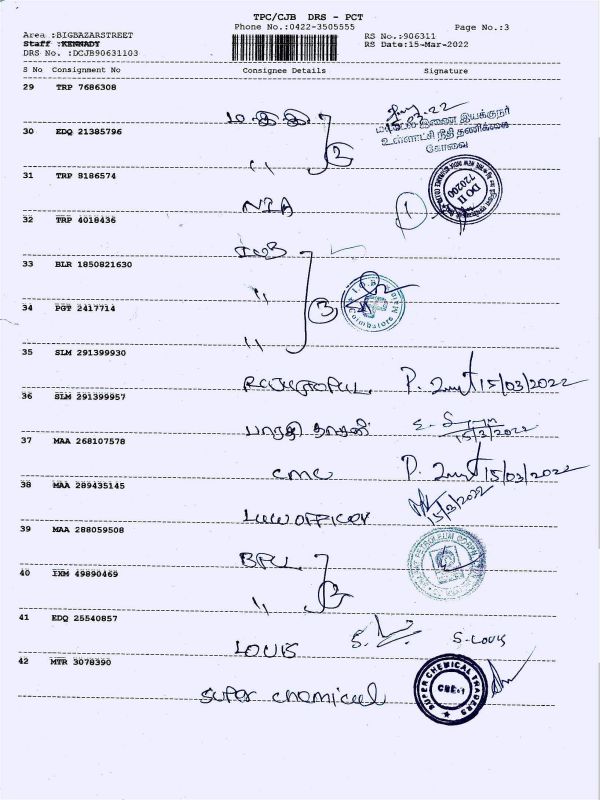 TPC/CJB DRS - PCT
Phone No.:0422-3505555
Page No.:3
Area :BIGBAZARSTREET
RS No.:906311
Staff :KENNADY
RS Date:15-Mar-2022
DRS No. :DCJB90631103
S No Consignment No Consignee Details Signature
29 TRP 7686308
22
இணை இயக்குநர்
உள்ளாட்சி நிதி தணிக்கை
கோவை
30 EDQ 21385796
" 2
31 TRP 8186574
NIA 1
DO II
720200
32 TRP 4018436
IOB
33 BLR 1850821630
" 3
34 PGT 2417714
"
35 SLM 291399930
P. 15/03/2022
36 SLM 291399957
பாரதி 15/3/2022
37 MAA 268107578
CMC P. 15/03/2022
38 MAA 289435145
15/3/2022
39 MAA 288059508
PETROLEUM
40 IXM 49890469
" 2
41 EDQ 25540857
LOUIS S. S-LOUIS
42 MTR 3078390
super chemical
SUPER CHEMICAL TRADERS
CBE-1